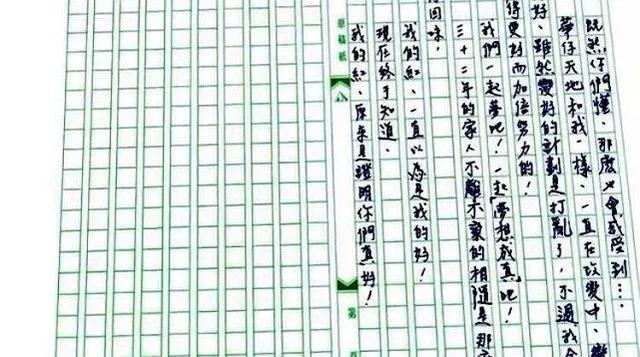 既然你們懂、那麼必會感受到....
華仔天地和我一樣、一直在改變中、
好、雖然變好的計劃是打亂了、不過我
得更好而加倍努力的!
我們一起夢吧!一起「夢想成真」吧!
三十二年的家人不離不棄的相隨是那
回味,
我的紅、一直以為是我的好!
現在終于知道、
我的紅、原來是證明你們真好!
原稿紙
八
第